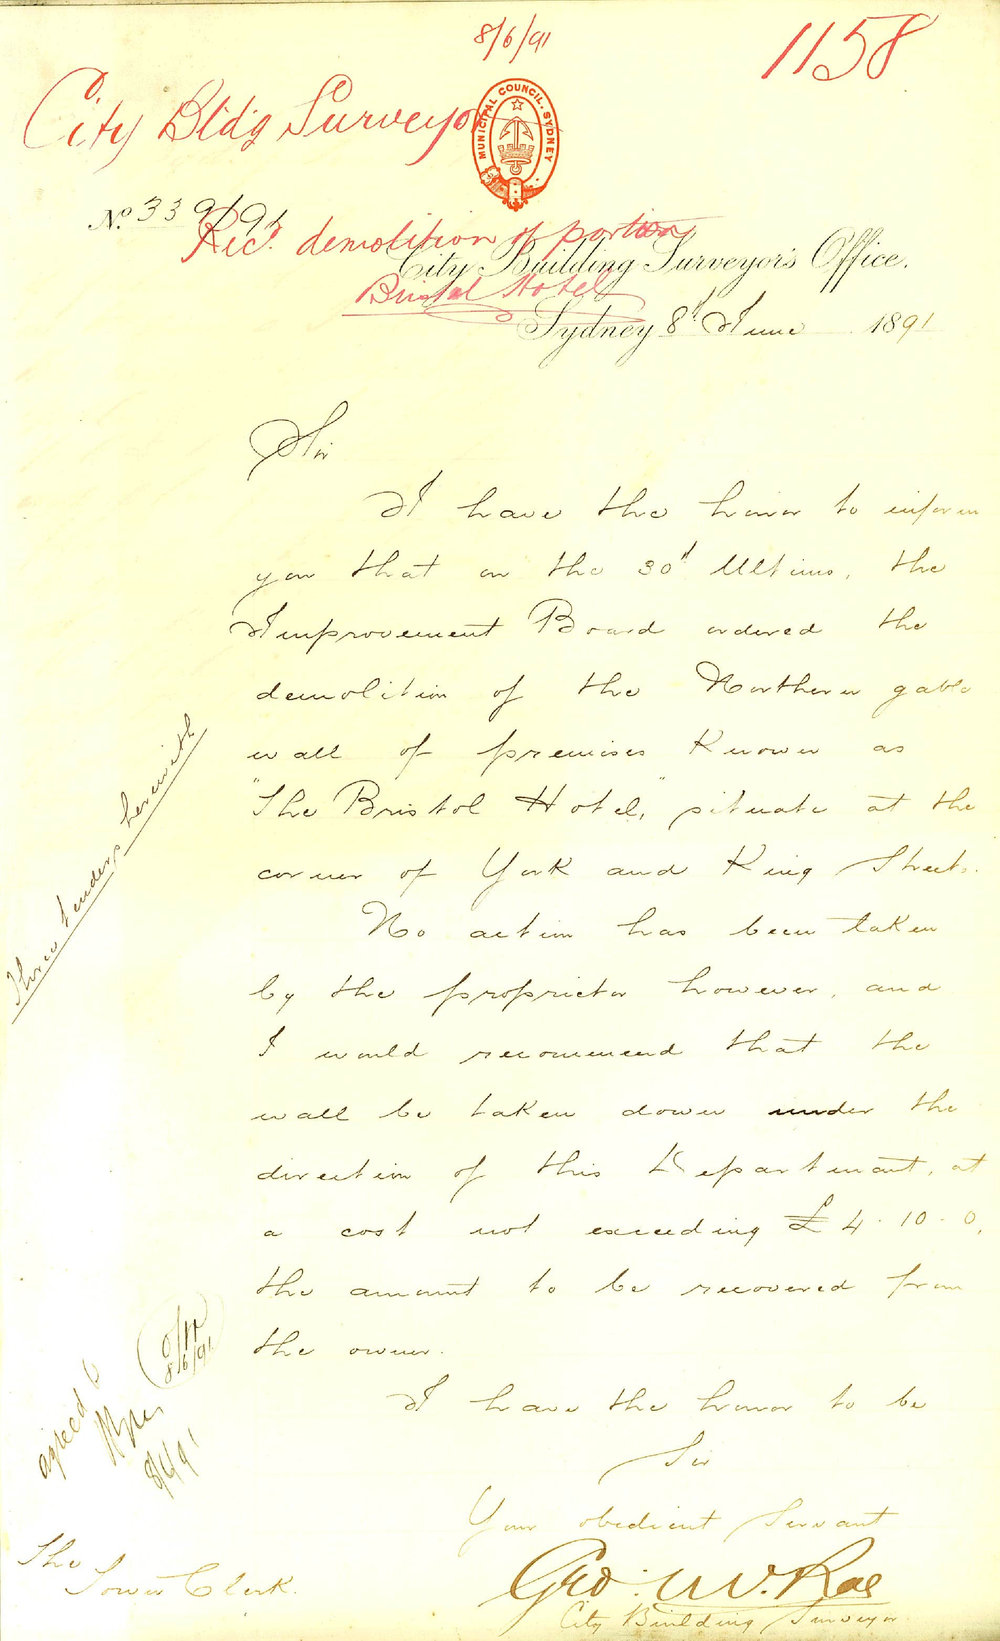 8/6/91
1158
City Bldg Surveyor
MUNICIPAL COUNCIL. SYDNEY
No. 339/91
Rec. demolition of portion
Bristol Hotel
City Building Surveyor's Office.
Sydney 8th June 1891
Sir
I have the honor to inform
you that on the 30th Ultimo, the
Improvement Board ordered the
demolition of the Northern gable
wall of premises Known as
"The Bristol Hotel," situate at the
corner of York and King Streets.
No action has been taken
by the proprietor however, and
I would recommend that the
wall be taken down under the
direction of this Department, at
a cost not exceeding £4-10-0,
the amount to be recovered from
the owner.
I have the honor to be
Sir
Your obedient Servant
Geo. W. Rae
City Building Surveyor.
The
Town Clerk.
Three tenders herewith
8/6/91
agreed